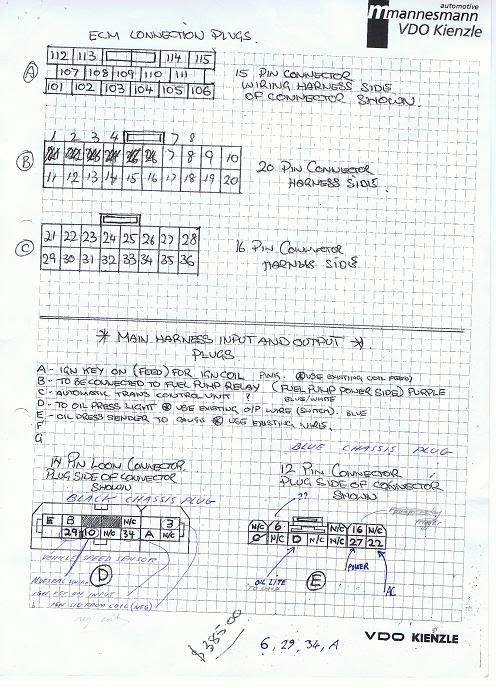 automotive
mannesmann
VDO Kienzle
ECM CONNECTION PLUGS.
112 113 114 115
A 107 108 109 110 111
101 102 103 104 105 106
15 PIN CONNECTOR
WIRING HARNESS SIDE
OF CONNECTOR SHOWN.
1 2 3 4 7 8
B 7 8 9 10
11 12 13 14 15 16 17 18 19 20
20 PIN CONNECTOR
HARNESS SIDE.
C 21 22 23 24 25 26 27 28
29 30 31 32 33 34 35 36
16 PIN CONNECTOR
HARNESS SIDE.
* MAIN HARNESS INPUT AND OUTPUT *
PLUGS.
A - IGN KEY ON (FEED) FOR IGN COIL PINK. USE EXISTING COIL FEED)
B - TO BE CONNECTED TO FUEL PUMP RELAY (FUEL PUMP POWER SIDE) PURPLE
C - AUTOMATIC TRANS CONTROL UNIT ? BLUE/WHITE
D - TO OIL PRESS LIGHT USE EXISTING O/P WIRE (SWITCH). BLUE
E - OIL PRESS SENDER TO GAUGE USE EXISTING WIRE.
F
G
BLUE CHASSIS PLUG
14 PIN LOOM CONNECTOR
PLUG SIDE OF CONNECTOR
SHOWN
BLACK CHASSIS PLUG
12 PIN CONNECTOR
PLUG SIDE OF CONNECTOR
SHOWN
??
E B N/C 3
29 10 N/C 34 A N/C
N/C 6 16 N/C
C N/C D N/C N/C 27 22
VEHICLE SPEED SENSOR
D
NEUTRAL
IGN KEY ON INPUT
IGN SIG FROM COIL (NEG)
OIL LITE
TO DASH
E
POWER
AC
$385.00
6, 29, 34, A
VDO KIENZLE